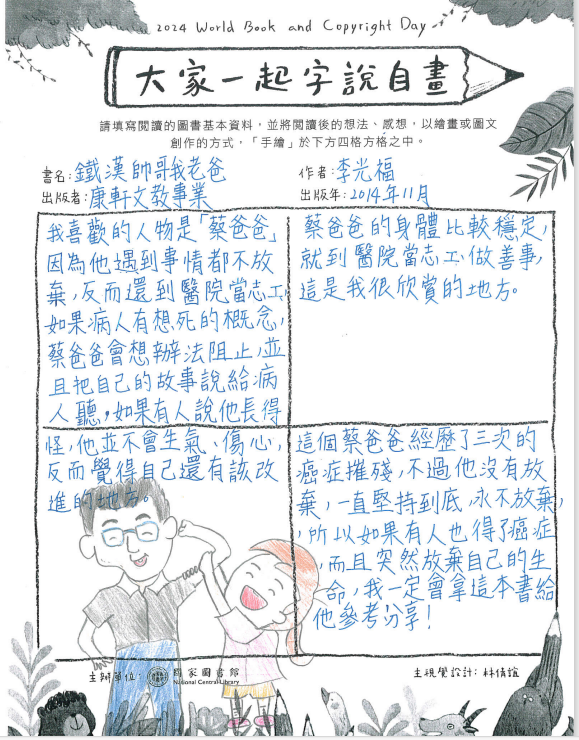 2024 World Book and Copyright Day
大家一起字說自畫
請填寫閱讀的圖書基本資料，並將閱讀後的想法、感想，以繪畫或圖文
創作的方式，「手繪」於下方四格方格之中。
書名：鐵漢帥哥我老爸
作者：李光福
出版者：康軒文教事業
出版年：2014年11月
我喜歡的人物是「蔡爸爸」
因為他遇到事情都不放
棄，反而還到醫院當志工，
如果病人有想死的概念，
蔡爸爸會想辦法阻止，並
且把自己的故事說給病
人聽，如果有人說他長得
怪，他並不會生氣、傷心，
反而覺得自己還有該改
進的地方。
蔡爸爸的身體比較穩定，
就到醫院當志工，做善事，
這是我很欣賞的地方。
這個蔡爸爸經歷了三次的
癌症摧殘，不過他沒有放
棄，一直堅持到底，永不放棄，
，所以如果有人也得了癌症
，而且突然放棄自己的生
命，我一定會拿這本書給
他參考分享！
主辦單位：
國家圖書館
National Central Library
主視覺設計：林倩誼